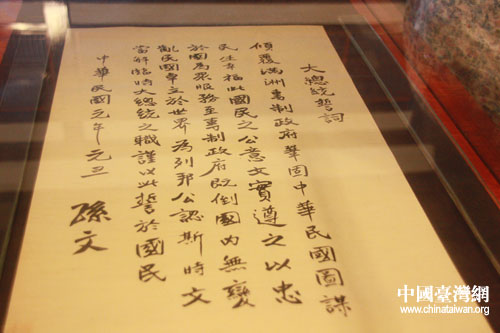 大總統誓詞
傾覆滿洲專制政府鞏固中華民國圖謀
民生幸福此國民之公意文實遵之以忠
於國為眾服務至專制政府既倒國內無變
亂民國卓立於世界為列邦公認斯時文
當解臨時大總統之職謹以此誓於國民
中華民國元年元旦 孫文
中國臺灣網
www.chinataiwan.org